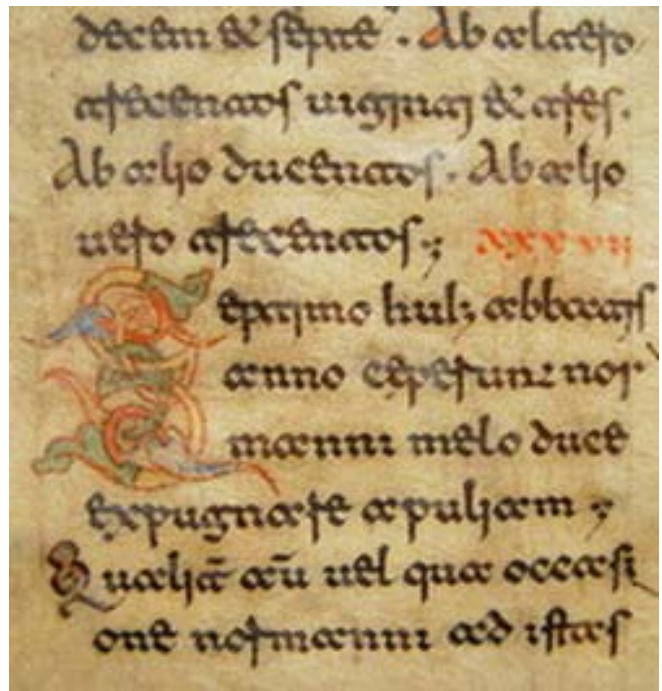 decem & septē . Ab altero
trecentos uiginti & tres .
Ab alio ducentos . Ab alio
uero trecentos ; xxxvii
Septimo hui; abbatis
anno ceperunt nor
manni melo duce
expugnare apuliam ;
Qualit̄ aū uel qua occasi
one normanni ad istas